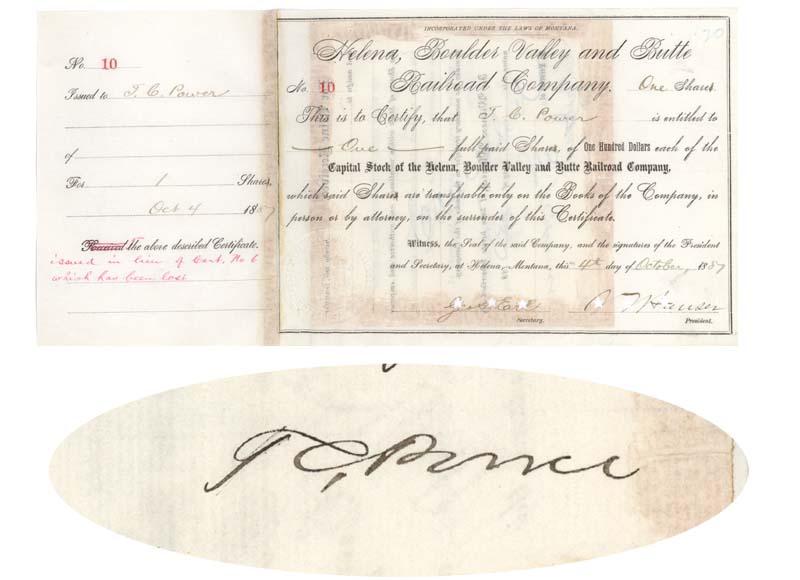 No. 10
Issued to T. C. Power
of
For 1 Shares,
Oct 4 1887
Received the above described Certificate.
issued in lieu of Cert. No 6
which has been lost
INCORPORATED UNDER THE LAWS OF MONTANA.
Helena, Boulder Valley and Butte
No. 10 Railroad Company. One Shares
This is to Certify, that T. C. Power is entitled to
One full paid Shares, of One Hundred Dollars each of the
Capital Stock of the Helena, Boulder Valley and Butte Railroad Company,
which said Shares are transferable only on the Books of the Company, in
person or by attorney, on the surrender of this Certificate.
Witness, the Seal of the said Company, and the signatures of the President
and Secretary, at Helena, Montana, this 4th day of October, 1887
S T Hauser
Secretary. President.
T C Power